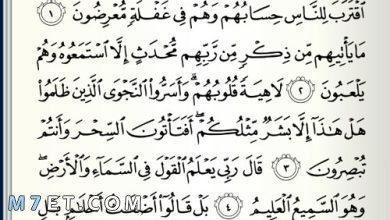 ٱقْتَرَبَ لِلنَّاسِ حِسَابُهُمْ وَهُمْ فِى غَفْلَةٍ مُّعْرِضُونَ ١
مَا يَأْتِيهِم مِّن ذِكْرٍ مِّن رَّبِّهِم مُّحْدَثٍ إِلَّا ٱسْتَمَعُوهُ وَهُمْ
يَلْعَبُونَ ٢ لَاهِيَةً قُلُوبُهُمْ وَأَسَرُّوا۟ ٱلنَّجْوَى ٱلَّذِينَ ظَلَمُوا۟
هَلْ هَٰذَآ إِلَّا بَشَرٌ مِّثْلُكُمْ أَفَتَأْتُونَ ٱلسِّحْرَ وَأَنتُمْ
تُبْصِرُونَ ٣ قَالَ رَبِّى يَعْلَمُ ٱلْقَوْلَ فِى ٱلسَّمَآءِ وَٱلْأَرْضِ
وَهُوَ ٱلسَّمِيعُ ٱلْعَلِيمُ ٤ بَلْ قَالُوٓا۟ أَضْغَٰثُ أَحْلَٰمٍ بَلِ
M7ET.COM